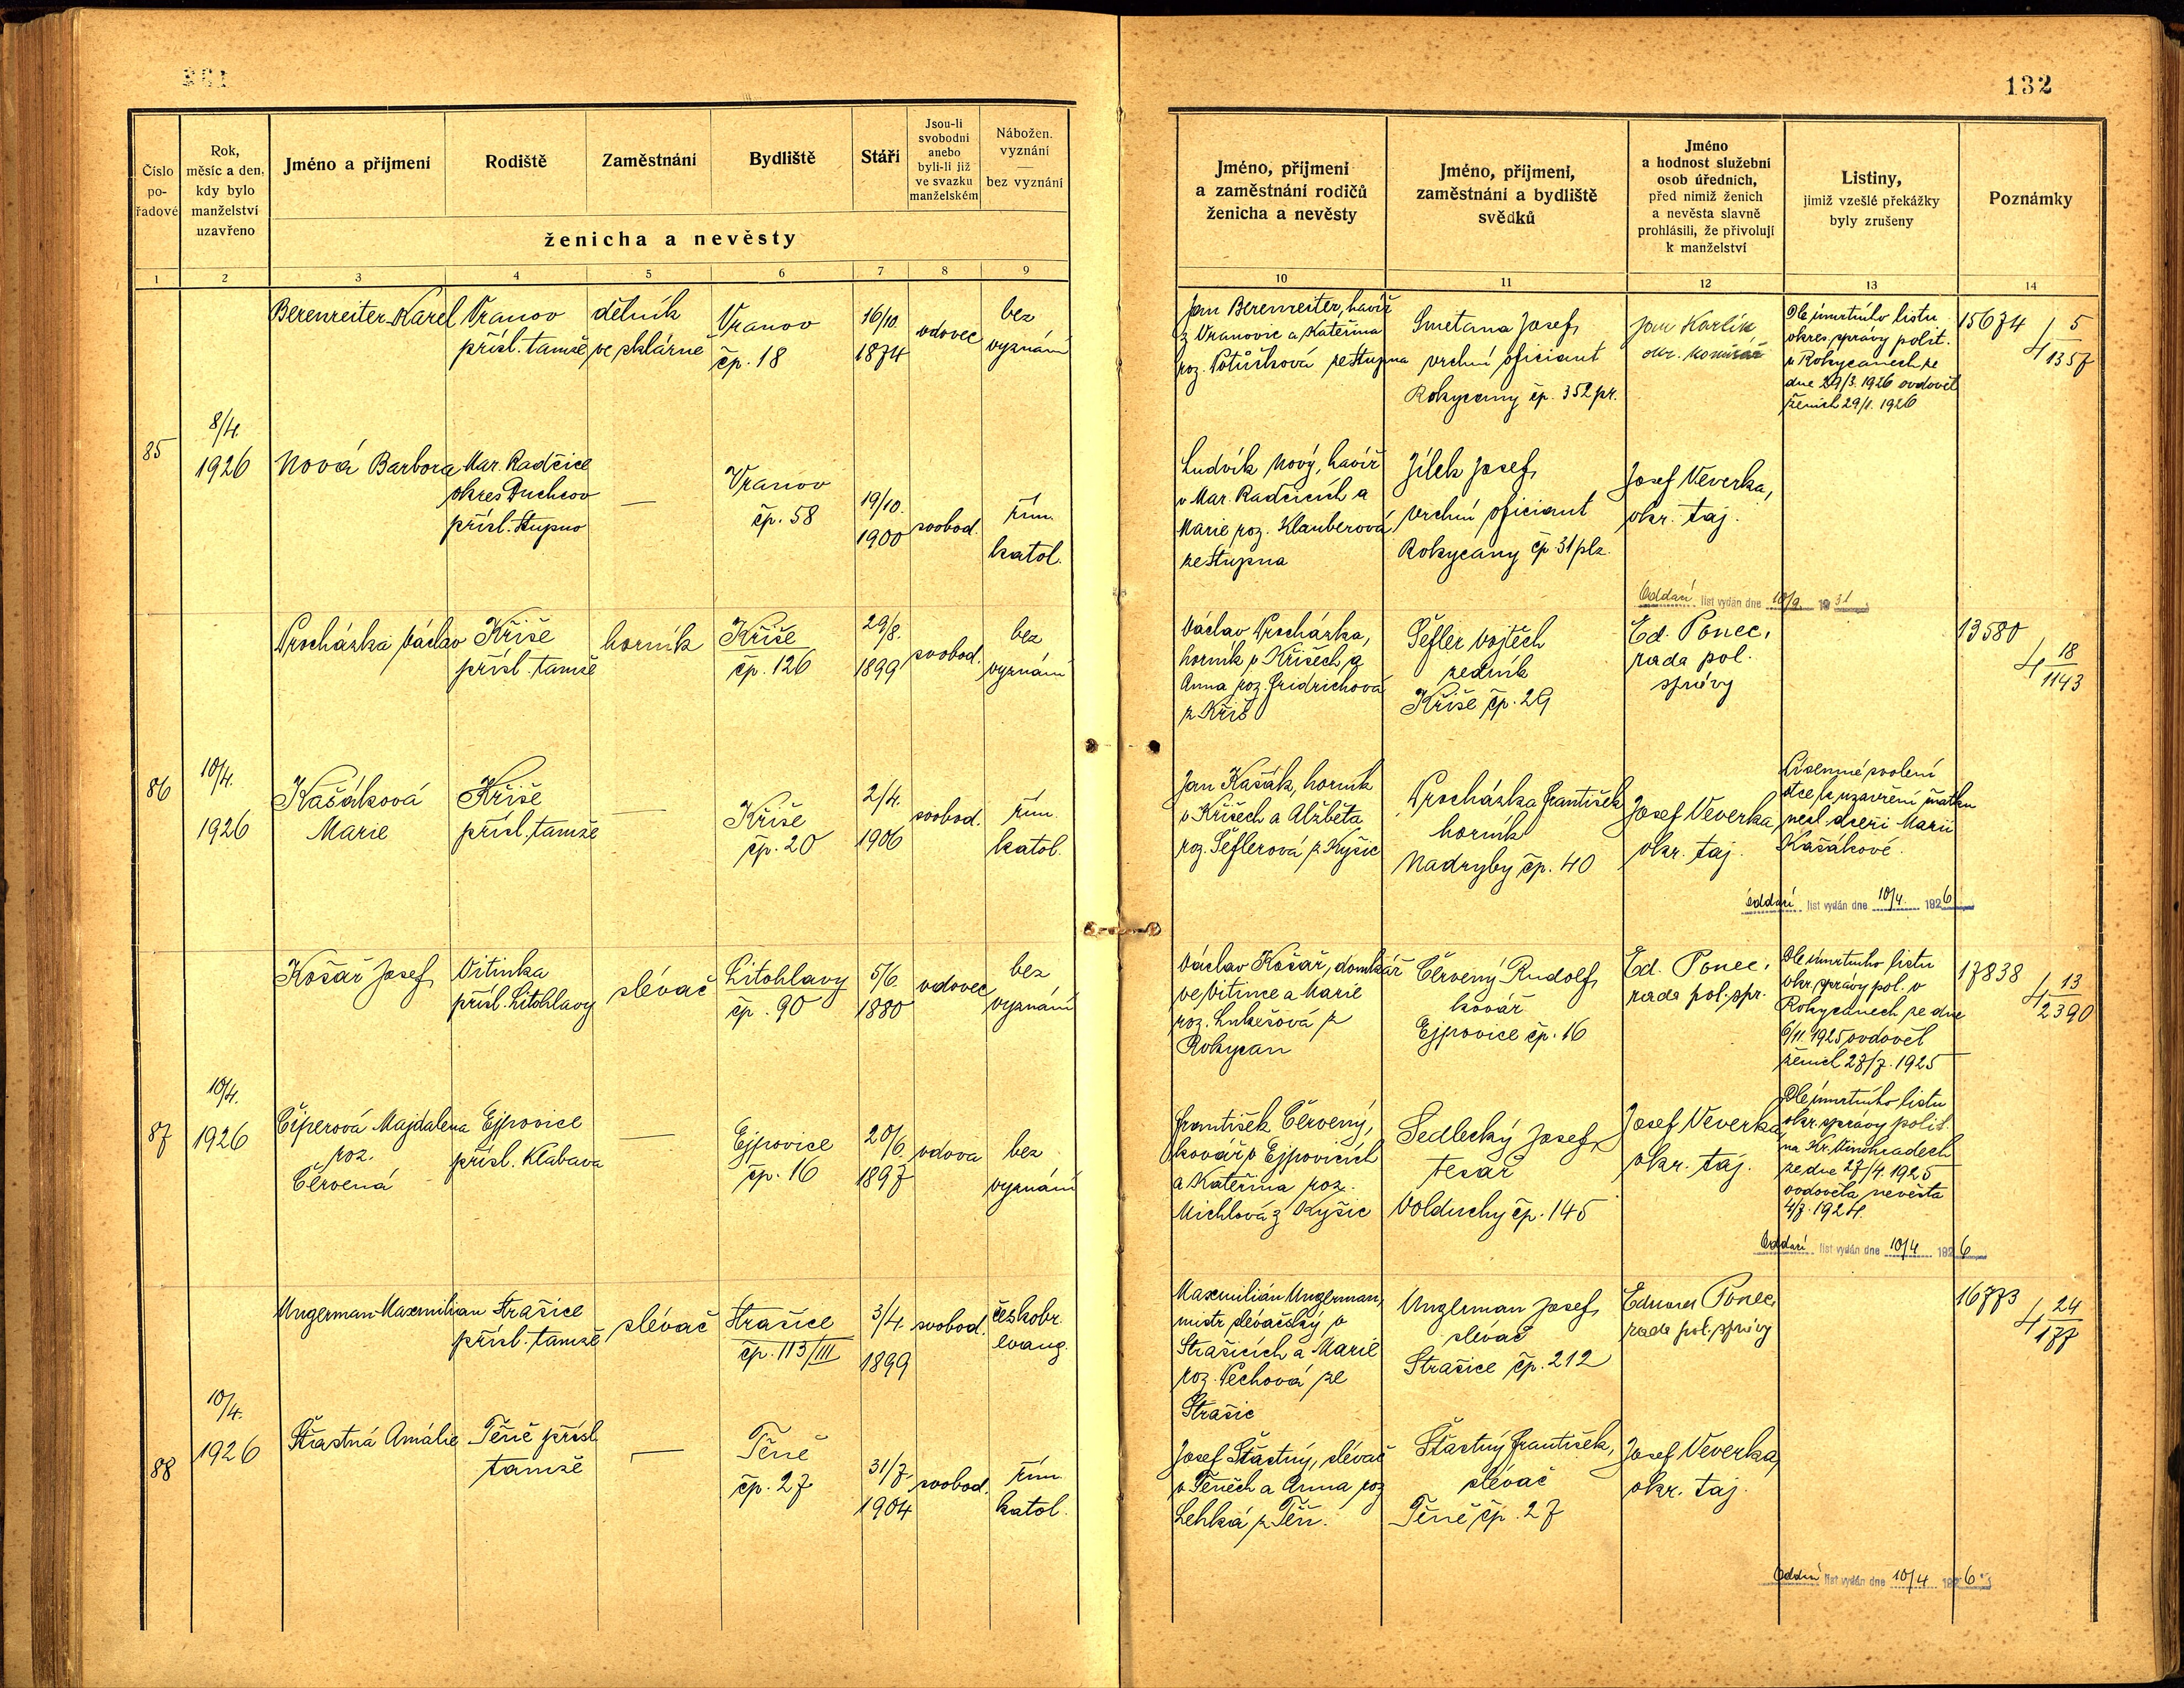 132
Číslo pořadové
Rok, měsíc a den, kdy bylo manželství uzavřeno
Jméno a příjmení
Rodiště
Zaměstnání
Bydliště
Stáří
Jsou-li svobodni anebo byli-li již ve svazku manželském
Nábožen. vyznání
bez vyznání
ženicha a nevěsty
Jméno, příjmení a zaměstnání rodičů ženicha a nevěsty
Jméno, příjmení, zaměstnání a bydliště svědků
Jméno a hodnost služební osob úředních, před nimiž ženich a nevěsta slavně prohlásili, že přivolují k manželství
Listiny, jimiž vzešlé překážky byly zrušeny
Poznámky
1 2 3 4 5 6 7 8 9 10 11 12 13 14
85
8/4.
1926
Berenreiter Karel
Vranov
přísl. tamže
dělník
ve sklárně
Vranov
čp. 18
16/10.
1874
vdovec
bez
vyznání
Jan Berenreiter, havíř
z Vranovic a Kateřina
roz. Potůčková ze Stupna
Smetana Josef,
vrchní oficiant
Rokycany čp. 352 pr.
Jan Karlík
okr. komisař
Dle úmrtního listu
okres. správy polit.
v Rokycanech ze
dne 29/3. 1926 ovdověl
ženich 29/1. 1926
15674
4 5/1357
Nová Barbora
Mar. Radčice
okres Duchcov
přísl. Stupno
—
Vranov
čp. 58
19/10.
1900
svobod.
řím.
katol.
Ludvík Nový, havíř
v Mar. Radčicích a
Marie roz. Klauberová
ze Stupna
Jílek Josef,
vrchní oficiant
Rokycany čp. 31 plz.
Josef Veverka,
okr. taj.
Oddací list vydán dne 10/9. 1931
86
10/4.
1926
Procházka Václav
Kříše
přísl. tamže
horník
Kříše
čp. 126
29/8.
1899
svobod.
bez
vyznání
Václav Procházka,
horník v Kříšech a
Anna roz. Fridrichová
z Kříš
Šefler Vojtěch
zedník
Kříše čp. 29
Ed. Ponec,
rada pol.
správy
13580
4 18/1143
Kašáková
Marie
Kříše
přísl. tamže
—
Kříše
čp. 20
2/4.
1906
svobod.
řím.
katol.
Jan Kašák, horník
v Kříšech a Alžběta
roz. Šeflerová z Kyšic
Procházka František
horník
Nadryby čp. 40
Josef Veverka,
okr. taj.
Písemné svolení
otce k uzavření sňatku
nezl. dceři Marii
Kašákové.
Oddací list vydán dne 10/4. 1926
87
10/4.
1926
Košař Josef
Vitinka
přísl. Litohlavy
slévač
Litohlavy
čp. 90
5/6.
1880
vdovec
bez
vyznání
Václav Košař, domkář
ve Vitince a Marie
roz. Lukešová z
Rokycan
Červený Rudolf,
kovář
Ejpovice čp. 16
Ed. Ponec,
rada pol. spr.
Dle úmrtního listu
okr. správy pol. v
Rokycanech ze dne
6/11. 1925 ovdověl
ženich 27/7. 1925
17838
4 13/2390
Čiperová Majdalena
roz.
Červená
Ejpovice
přísl. Klabava
—
Ejpovice
čp. 16
20/6.
1897
vdova
bez
vyznání
František Červený,
kovář v Ejpovicích
a Kateřina roz.
Michlová z Kyšic
Sedlecký Josef,
tesař
Volduchy čp. 145
Josef Veverka,
okr. taj.
Dle úmrtního listu
okr. správy polit.
na Kr. Vinohradech
ze dne 27/4. 1925
ovdověla nevěsta
4/7. 1924.
Oddací list vydán dne 10/4 1926
88
10/4.
1926
Ungerman Maxmilian
Strašice
přísl. tamže
slévač
Strašice
čp. 113/III
3/4.
1899
svobod.
českobr.
evang.
Maxmilián Ungerman,
mistr slévačský v
Strašicích a Marie
roz. Pechová ze
Strašic
Ungerman Josef,
slévač
Strašice čp. 212
Eduard Ponec,
rada pol. správy
16773
4 24/177
Šťastná Amálie
Těně přísl.
tamže
—
Těně
čp. 27
31/7.
1904
svobod.
řím.
katol.
Josef Šťastný, slévač
v Těních a Anna roz.
Lehká z Těň.
Šťastný František,
slévač
Těně čp. 27
Josef Veverka,
okr. taj.
Oddací list vydán dne 10/4 1926